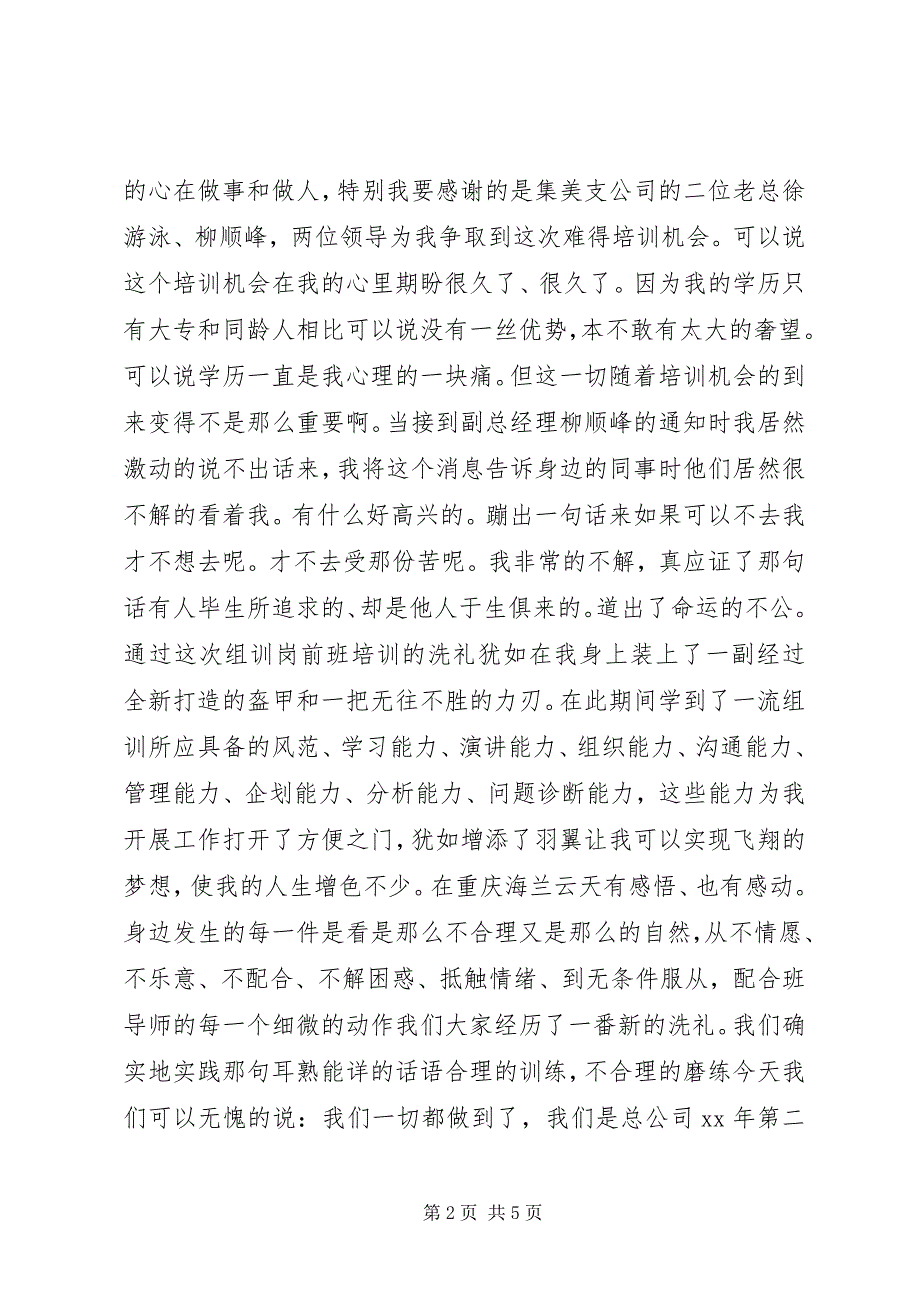 的心在做事和做人，特别我要感谢的是集美支公司的二位老总徐
游泳、柳顺峰，两位领导为我争取到这次难得培训机会。可以说
这个培训机会在我的心里期盼很久了、很久了。因为我的学历只
有大专和同龄人相比可以说没有一丝优势，本不敢有太大的奢望。
可以说学历一直是我心理的一块痛。但这一切随着培训机会的到
来变得不是那么重要啊。当接到副总经理柳顺峰的通知时我居然
激动的说不出话来，我将这个消息告诉身边的同事时他们居然很
不解的看着我。有什么好高兴的。蹦出一句话来如果可以不去我
才不想去呢。才不去受那份苦呢。我非常的不解，真应证了那句
话有人毕生所追求的、却是他人于生俱来的。道出了命运的不公。
通过这次组训岗前班培训的洗礼犹如在我身上装上了一副经过
全新打造的盔甲和一把无往不胜的力刃。在此期间学到了一流组
训所应具备的风范、学习能力、演讲能力、组织能力、沟通能力、
管理能力、企划能力、分析能力、问题诊断能力，这些能力为我
开展工作打开了方便之门，犹如增添了羽翼让我可以实现飞翔的
梦想，使我的人生增色不少。在重庆海兰云天有感悟、也有感动。
身边发生的每一件是看是那么不合理又是那么的自然，从不情愿、
不乐意、不配合、不解困惑、抵触情绪、到无条件服从，配合班
导师的每一个细微的动作我们大家经历了一番新的洗礼。我们确
实地实践那句耳熟能详的话语合理的训练，不合理的磨练今天我
们可以无愧的说：我们一切都做到了，我们是总公司 xx 年第二
第 2 页 共 5 页